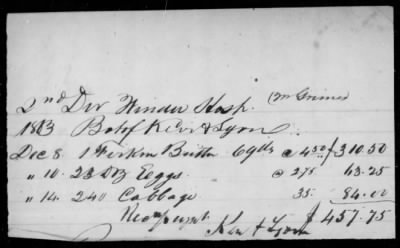 2nd Div Winder Hosp.
1863 Bot of Kerr & Lyon
Dec 8. 1 Firkin Butter 69 lbs @ 4.50 $310.50
" 10. 23 Dz Eggs @ 275 63.25
" 14. 240 Cabbage 35. 84.00
Kerr & Lyon $457.75